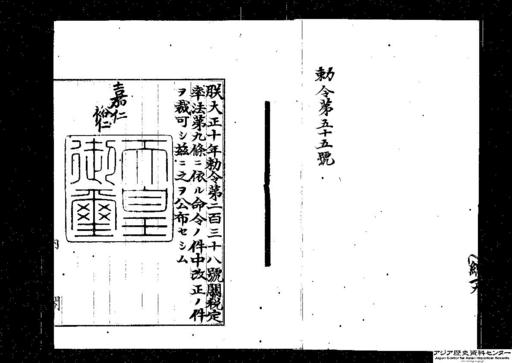 勅令第五十五號
朕大正十年勅令第二百三十八號關税定
率法第九條ニ依ル命令ノ件中改正ノ件
ヲ裁可シ茲ニ之ヲ公布セシム
嘉仁
裕仁
天皇
御璽
内
閣
アジア歴史資料センター
Japan Center for Asian Historical Records